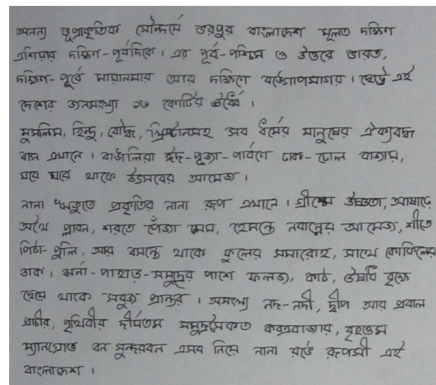 অনন্য ভূপ্রাকৃতিক সৌন্দর্যে ভরপুর বাংলাদেশ মূলত দক্ষিণ
এশিয়ার দক্ষিণ-পূর্বদিকে। এর পূর্ব-পশ্চিম ও উত্তরে ভারত,
দক্ষিণ-পূর্বে মায়ানমার আর দক্ষিণে বঙ্গোপসাগর। ছোট্ট এই
দেশের জনসংখ্যা ১৬ কোটির ঊর্ধ্বে।
মুসলিম, হিন্দু, বৌদ্ধ, খ্রিস্টানসহ সব ধর্মের মানুষের ঐক্যবদ্ধ
বাস এখানে। বাঙালিরা ঈদ-পূজা-পার্বণে ঢাক-ঢোল বাজায়,
ঘরে ঘরে থাকে উৎসবের আমেজ।
নানা ঋতুতে প্রকৃতির নানা রূপ এখানে। গ্রীষ্মে উষ্ণতা, আষাঢ়ে
অথৈ প্লাবন, শরতে পেঁজা মেঘ, হেমন্তে নবান্নের আমেজ, শীতে
পিঠা-পুলি, আর বসন্তে থাকে ফুলের সমারোহ, সাথে কোকিলের
ডাক। পাহাড়-সমুদ্রের পাশে ফলজ, কাঠ, ঔষধি বৃক্ষে
ছেয়ে থাকে সবুজ প্রান্তর। অসংখ্য নদ-নদী, দ্বীপ আর প্রবাল
প্রাচীর, পৃথিবীর দীর্ঘতম সমুদ্রসৈকত কক্সবাজার, বৃহত্তম
ম্যানগ্রোভ বন সুন্দরবন এসব নিয়ে নানা রঙে রূপসী এই
বাংলাদেশ।